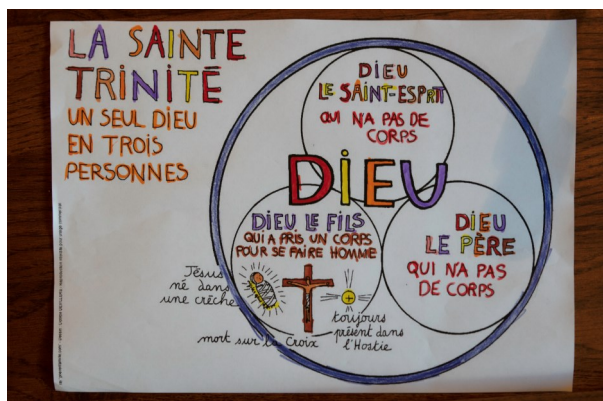 LA SAINTE
TRINITÉ
UN SEUL DIEU
EN TROIS
PERSONNES
DIEU
LE SAINT-ESPRIT
QUI N'A PAS DE
CORPS
DIEU
DIEU LE FILS
QUI A PRIS UN CORPS
POUR SE FAIRE HOMME
DIEU
LE PÈRE
QUI N'A PAS
DE CORPS
Jésus
né dans
une crèche
mort sur la Croix
toujours
présent dans
l'Hostie